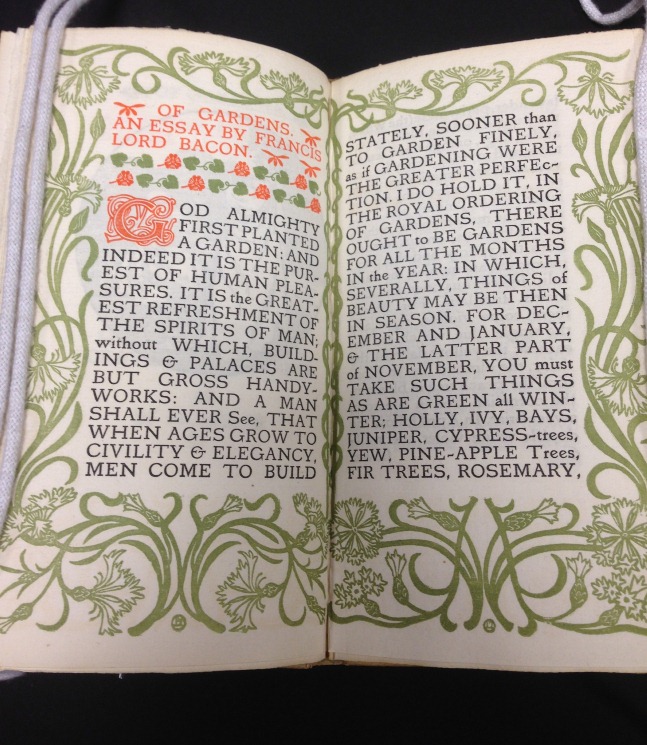 OF GARDENS.
AN ESSAY BY FRANCIS
LORD BACON.
GOD ALMIGHTY
FIRST PLANTED
A GARDEN: AND
INDEED IT IS THE PUR-
EST OF HUMAN PLEA-
SURES. IT IS the GREAT-
EST REFRESHMENT OF
THE SPIRITS OF MAN;
without WHICH, BUILD-
INGS & PALACES ARE
BUT GROSS HANDY-
WORKS: AND A MAN
SHALL EVER See, THAT
WHEN AGES GROW TO
CIVILITY & ELEGANCY,
MEN COME TO BUILD
STATELY, SOONER than
TO GARDEN FINELY,
as if GARDENING WERE
THE GREATER PERFEC-
TION. I DO HOLD IT, IN
THE ROYAL ORDERING
OF GARDENS, THERE
OUGHT to BE GARDENS
FOR ALL THE MONTHS
IN the YEAR: IN WHICH,
SEVERALLY, THINGS of
BEAUTY MAY BE THEN
IN SEASON. FOR DEC-
EMBER AND JANUARY,
& THE LATTER PART
of NOVEMBER, YOU must
TAKE SUCH THINGS
AS ARE GREEN all WIN-
TER; HOLLY, IVY, BAYS,
JUNIPER, CYPRESS-trees,
YEW, PINE-APPLE Trees,
FIR TREES, ROSEMARY,